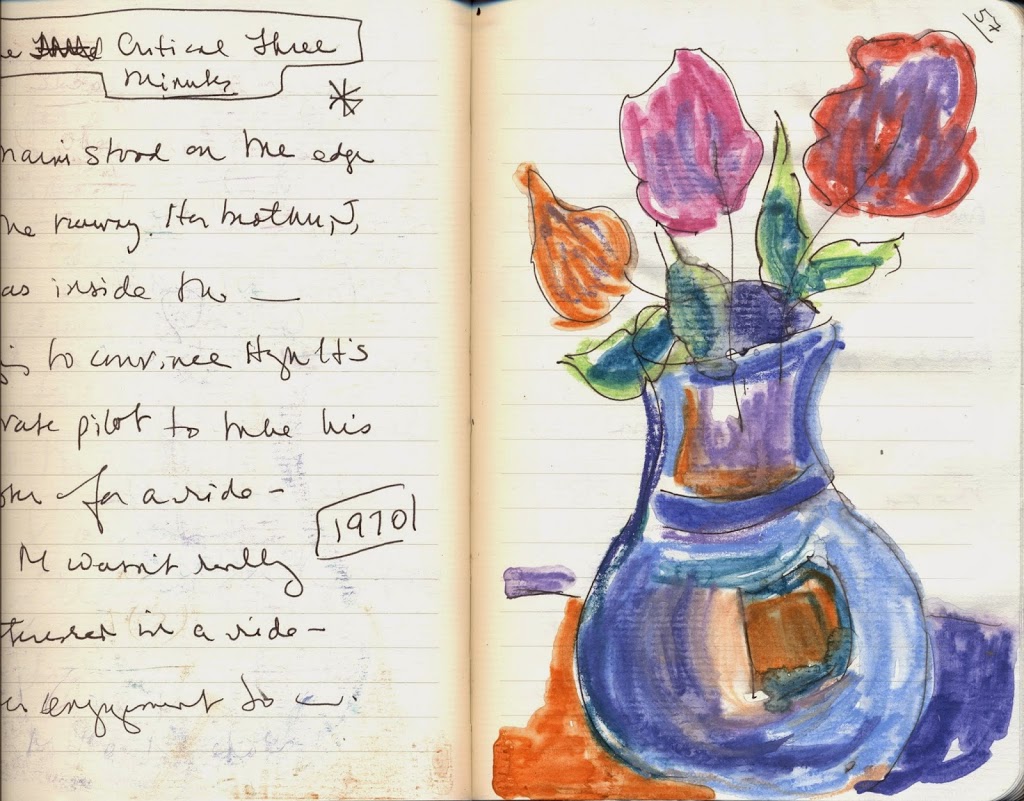 Critical Three
Minutes
stood on the edge
he runway. Her brother, J,
as inside the —
to convince
vate pilot to take his
for a ride -
1970
M wasn't really
in a ride -
engagement to —.
57